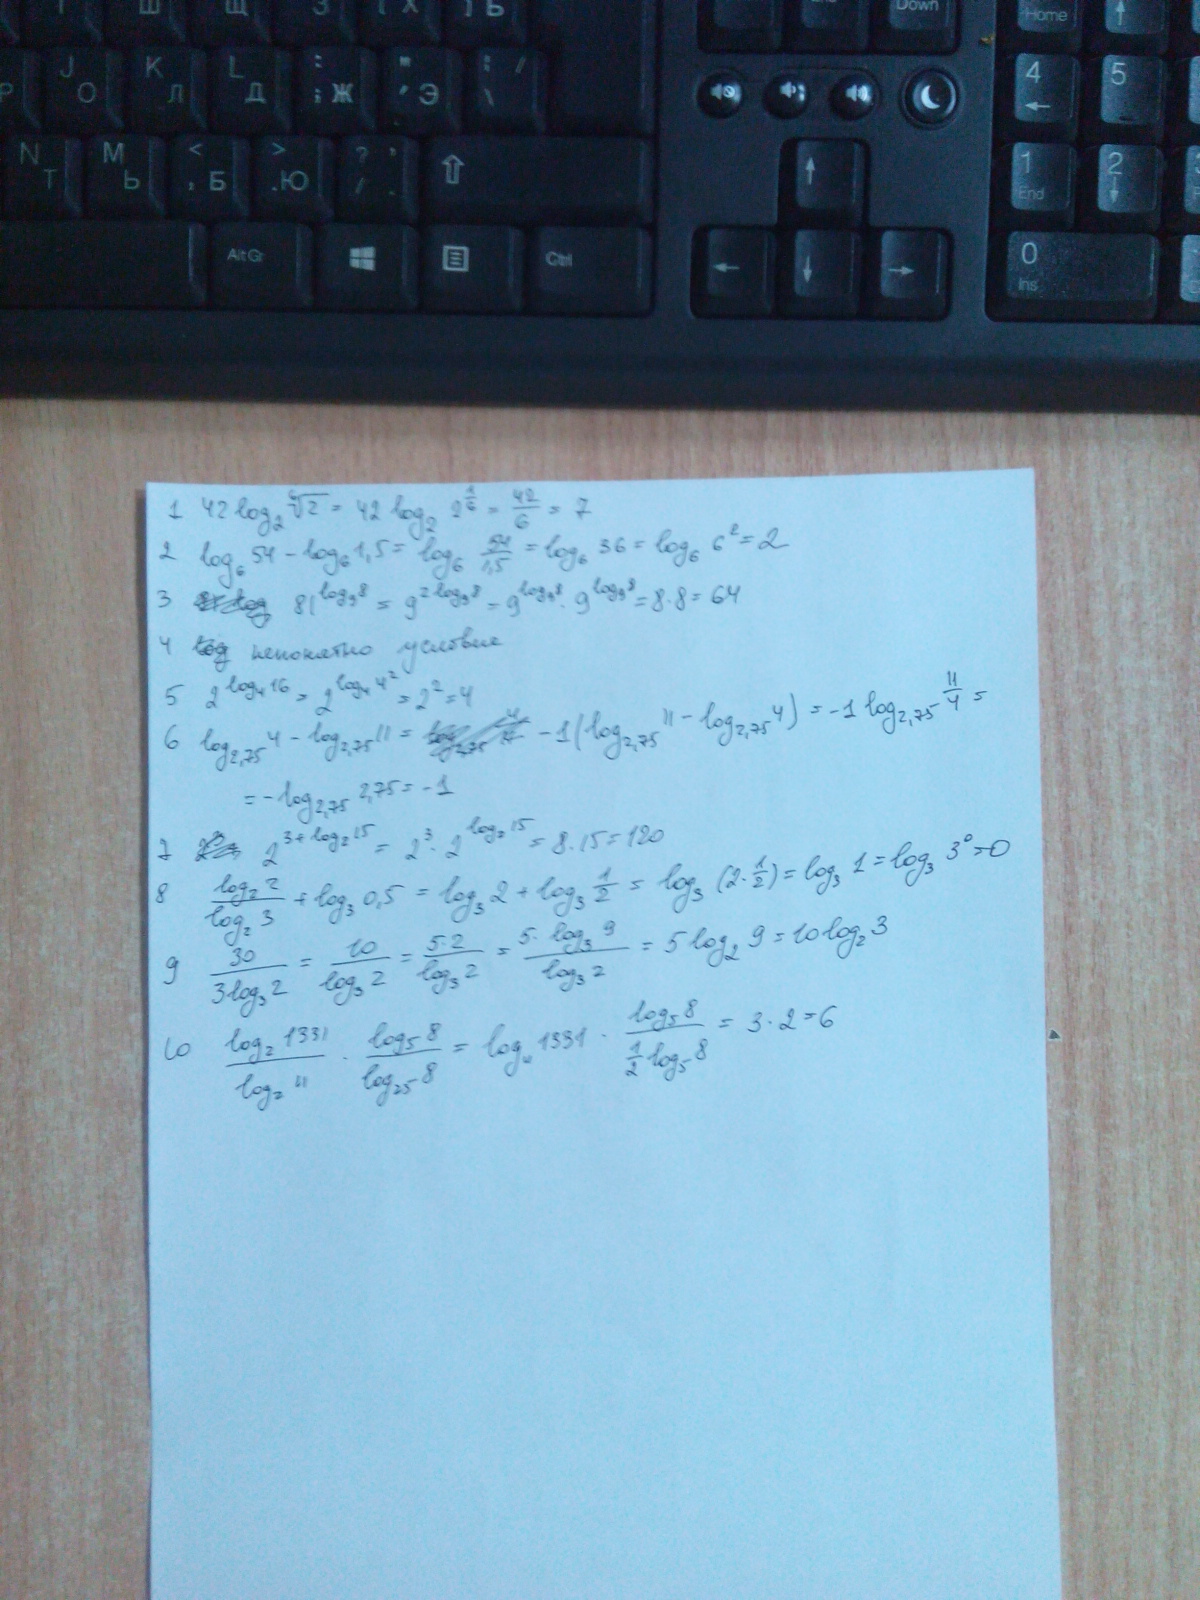 Ш Щ З [ Х ] Ъ Down Home ↑
J О K Л L Д : ; Ж " ' Э | / \ 4 ← 5
N Т M Ь < , Б > . Ю ? / , . ⇧ ↑ 1 End 2 ↓
Alt Gr Ctrl ← ↓ → 0 Ins
1 42 log₂ ⁶√2 = 42 log₂ 2^(1/6) = 42/6 = 7
2 log₆ 54 - log₆ 1,5 = log₆ 54/1,5 = log₆ 36 = log₆ 6² = 2
3 81^(log₉ 8) = 9^(2 log₉ 8) = 9^(log₉ 8) · 9^(log₉ 8) = 8·8 = 64
4 непонятно условие
5 2^(log₄ 16) = 2^(log₄ 4²) = 2² = 4
6 log_2,75 4 - log_2,75 11 = -1(log_2,75 11 - log_2,75 4) = -1 log_2,75 11/4 =
= -log_2,75 2,75 = -1
7 2^(3+log₂ 15) = 2³ · 2^(log₂ 15) = 8·15 = 120
8 log₂ 2 / log₂ 3 + log₃ 0,5 = log₃ 2 + log₃ 1/2 = log₃ (2·1/2) = log₃ 1 = log₃ 3⁰ = 0
9 30 / 3log₃ 2 = 10 / log₃ 2 = 5·2 / log₃ 2 = 5·log₃ 9 / log₃ 2 = 5 log₂ 9 = 10 log₂ 3
10 log₂ 1331 / log₂ 11 · log₅ 8 / log₂₅ 8 = log₁₁ 1331 · log₅ 8 / 1/2 log₅ 8 = 3·2 = 6